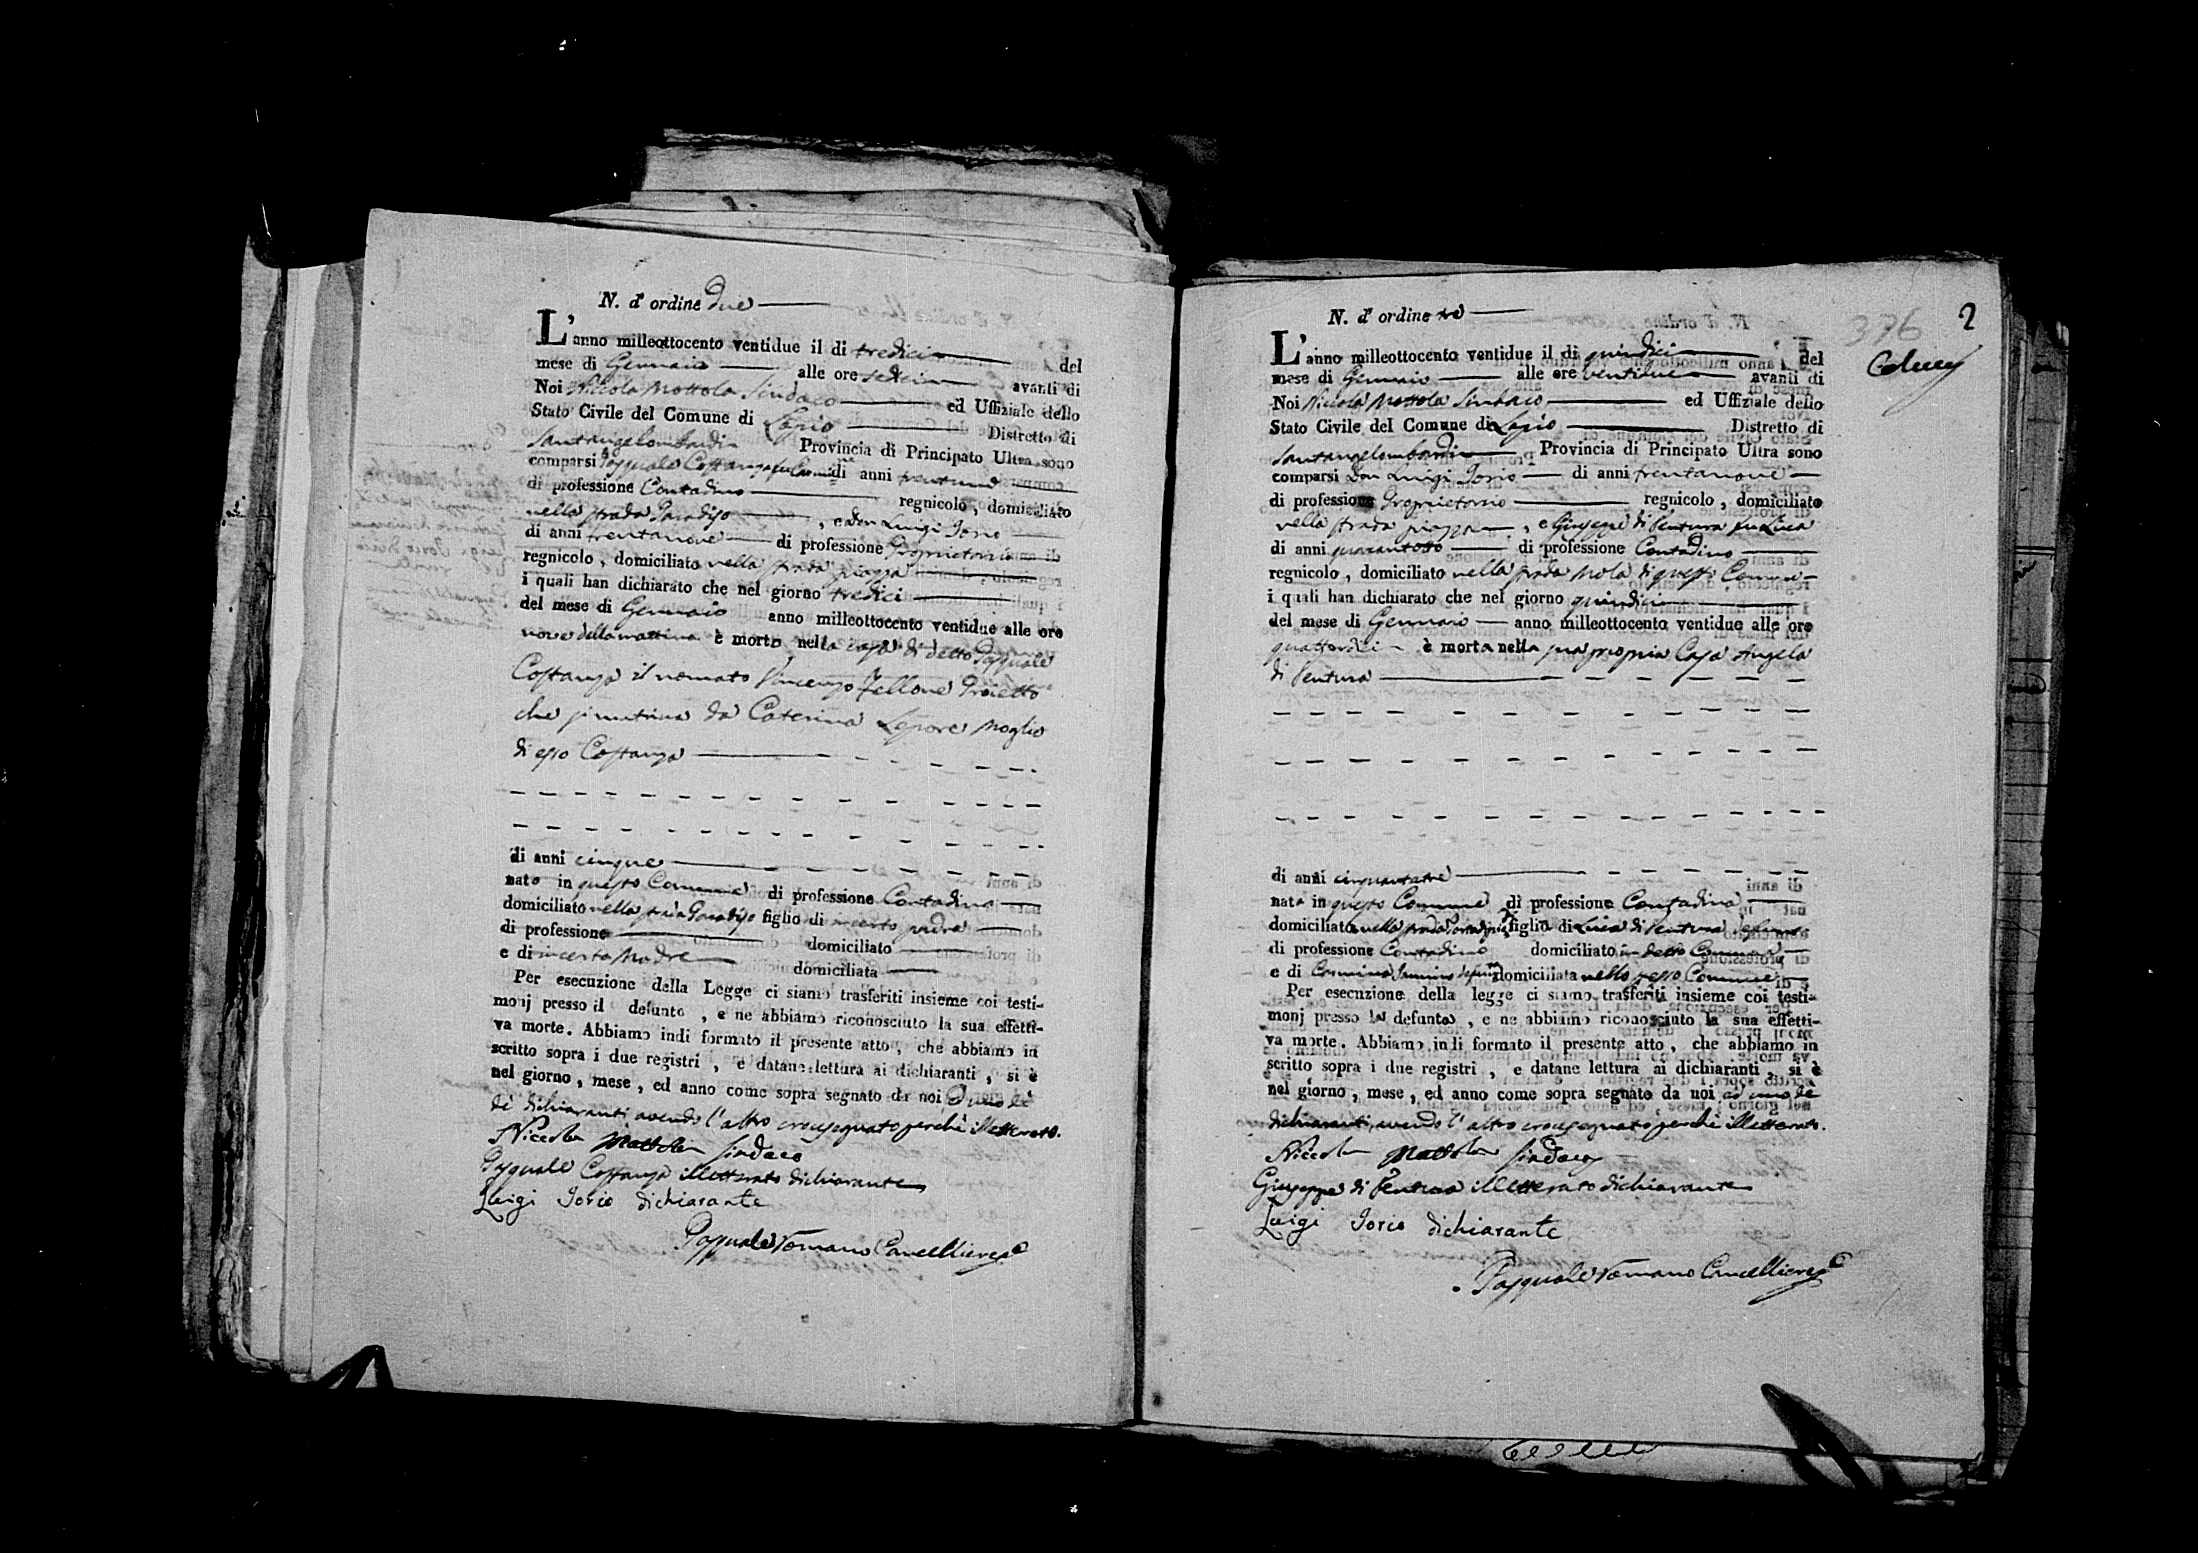 N. d' ordine due
L'anno milleottocento ventidue il di tredici del
mese di Gennaio alle ore sedici avanti di
Noi Niccola Mottola Sindaco ed Uffiziale dello
Stato Civile del Comune di Lapio Distretto di
Santangelombardi Provincia di Principato Ultra sono
comparsi Pasquale Costanza fu di anni trentuno
di professione Contadino regnicolo, domiciliato
nella strada Paradiso, e don Luigi Iorio
di anni trentanove di professione Proprietario
regnicolo, domiciliato nella strada piazza
i quali han dichiarato che nel giorno tredici
del mese di Gennaio anno milleottocento ventidue alle ore
nove della mattina è morto nella casa di detto Pasquale
Costanza il nomato Vincenzo Fellone Proietto
che si nutriva da Caterina Lepore Moglie
di esso Costanza
di anni cinque
nato in questo Comune di professione Contadino
domiciliato nella strada Paradiso figlio di incerto padre
di professione domiciliato
e di incerta Madre domiciliata
Per esecuzione della Legge ci siamo trasferiti insieme coi testi-
monj presso il defunto, e ne abbiamo riconosciuto la sua effetti-
va morte. Abbiamo indi formato il presente atto, che abbiamo in
scritto sopra i due registri, e datane lettura ai dichiaranti, si è
nel giorno, mese, ed anno come sopra segnato da noi ed uno de
dè dichiaranti avendo l'altro crocesegnato perchè illetterato.
Niccola Mottola Sindaco
Pasquale Costanza illetterato dichiarante
Luigi Iorio dichiarante
Pasquale Romano Cancelliere
2
376
N. d' ordine tre
L'anno milleottocento ventidue il di quindici del
mese di Gennaio alle ore ventidue avanti di
Noi Niccola Mottola Sindaco ed Uffiziale dello
Stato Civile del Comune di Lapio Distretto di
Santangelombardi Provincia di Principato Ultra sono
comparsi Don Luigi Iorio di anni trentanove
di professione Proprietario regnicolo, domiciliato
nella strada piazza, e Giuseppe di Ventura fu Luca
di anni quarantotto di professione Contadino
regnicolo, domiciliato nella strada Mola di questo Comune
i quali han dichiarato che nel giorno quindici
del mese di Gennaio anno milleottocento ventidue alle ore
quattordici è morta nella sua propria Casa Angela
di Ventura
di anni cinquantatre
nata in questo Comune di professione Contadina
domiciliata nella strada figlia di Luca di Ventura defunto
di professione Contadino domiciliato in detto Comune
e di Carmina defunta domiciliata nello stesso Comune
Per esecuzione della legge ci siamo trasferiti insieme coi testi-
monj presso la defunta, e ne abbiamo riconosciuto la sua effetti-
va morte. Abbiamo indi formato il presente atto, che abbiamo in
scritto sopra i due registri, e datane lettura ai dichiaranti, si è
nel giorno, mese, ed anno come sopra segnato da noi ad uno de
dichiaranti, avendo l'altro crocesegnato perchè illetterato.
Niccola Mottola Sindaco
Giuseppe di Ventura illetterato dichiarante
Luigi Iorio dichiarante
Pasquale Romano Cancelliere